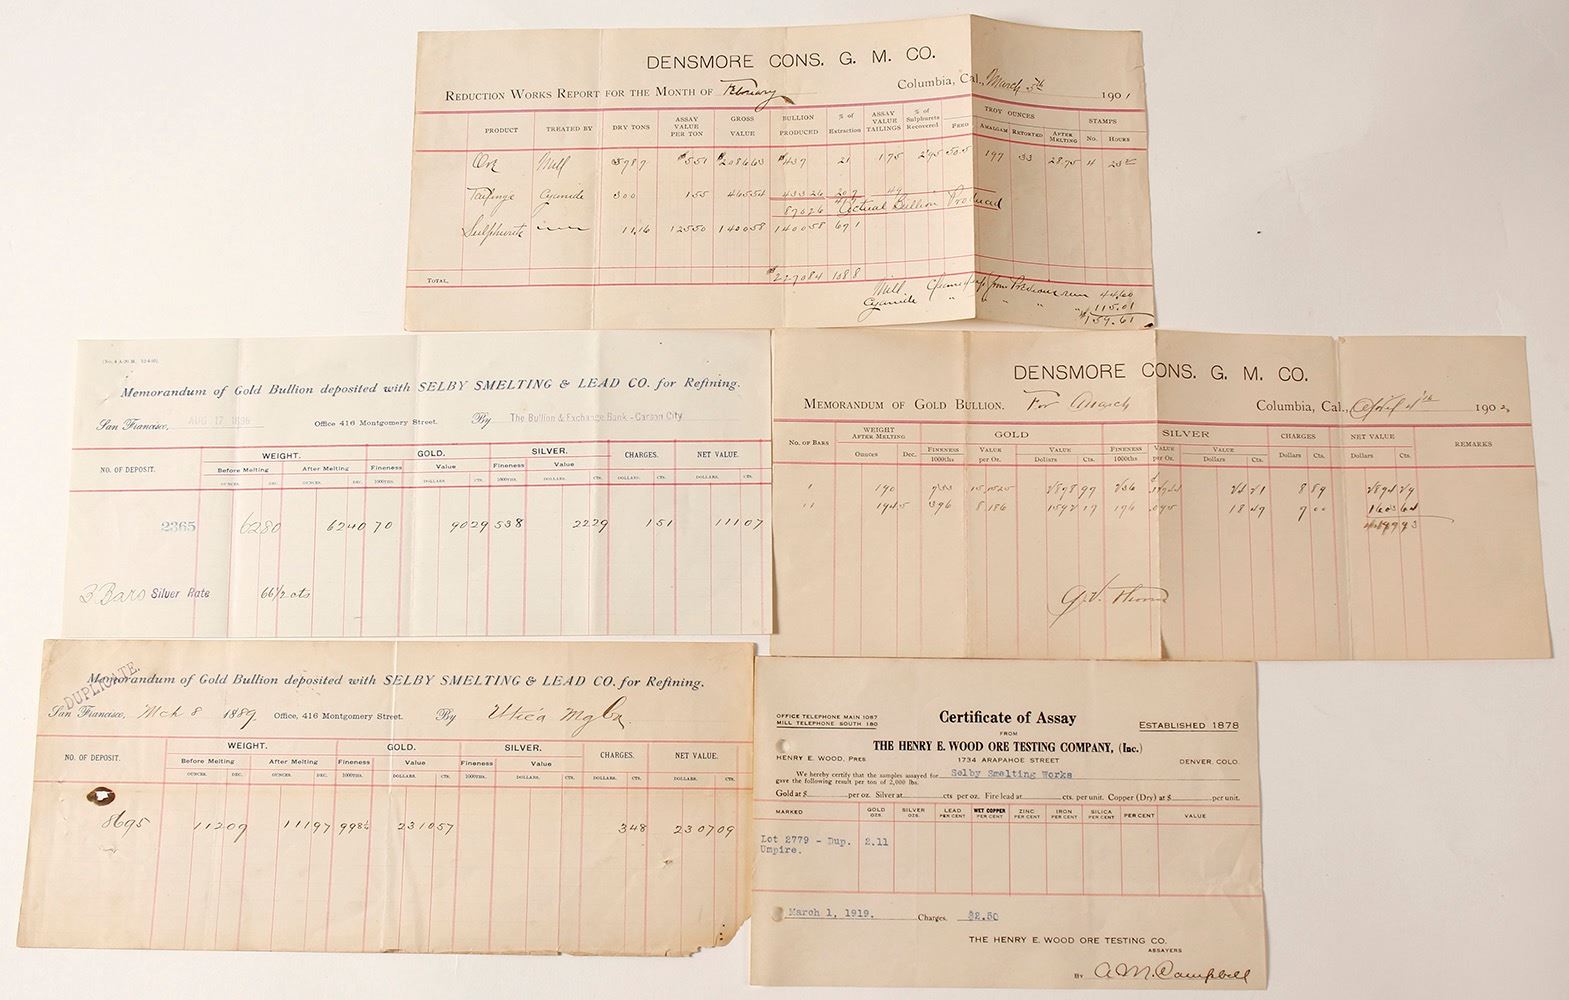 DENSMORE CONS. G. M. CO.
REDUCTION WORKS REPORT FOR THE MONTH OF February Columbia, Cal., March 5th 1901
PRODUCT TREATED BY DRY TONS ASSAY VALUE PER TON GROSS VALUE BULLION PRODUCED % of Extraction ASSAY VALUE TAILINGS % of Sulphurets Recovered FEED TROY OUNCES AMALGAM RETORTED AFTER MELTING STAMPS NO. HOURS
Ore Mill 3787 $551 $208663 $437 21 175 295 50.5 197 33 28.75 4
Tailings Cyanide 300 155 46554 43326 207
87026 Actual Bullion Produced
Sulphurets 11.16 12550 140058 140058 691
TOTAL, $227084 1388
Mill Cleaned up from Previous run 44.60
Cyanide " " " " 115.01
$159.61
Memorandum of Gold Bullion deposited with SELBY SMELTING & LEAD CO. for Refining.
San Francisco, AUG 17 1896 Office 416 Montgomery Street. By The Bullion & Exchange Bank - Carson City
NO. OF DEPOSIT. WEIGHT. GOLD. SILVER. CHARGES. NET VALUE.
Before Melting After Melting Fineness Value Fineness Value
OUNCES. DEC. OUNCES. DEC. 1000THS. DOLLARS. CTS. 1000THS. DOLLARS. CTS. DOLLARS. CTS. DOLLARS. CTS.
2365 6280 6240 70 9029 538 2229 151 11107
3 Bars Silver Rate 66 1/2 cts
DENSMORE CONS. G. M. CO.
MEMORANDUM OF GOLD BULLION. For March Columbia, Cal., April 4th 190
No. OF BARS WEIGHT AFTER MELTING GOLD SILVER CHARGES NET VALUE REMARKS
Ounces Dec. FINENESS 1000ths VALUE per Oz. VALUE Dollars Cts. FINENESS 1000ths VALUE per Oz. VALUE Dollars Cts. Dollars Cts. Dollars Cts.
1 190 889
11 194.5 396 8.186 1592 17 196 .095 18 49 7 00 1603 64
DUPLICATE.
Memorandum of Gold Bullion deposited with SELBY SMELTING & LEAD CO. for Refining.
San Francisco, Mch 8 1889. Office, 416 Montgomery Street. By Utica Mg Co.
NO. OF DEPOSIT. WEIGHT. GOLD. SILVER. CHARGES. NET VALUE.
Before Melting After Melting Fineness Value Fineness Value
OUNCES. DEC. OUNCES. DEC. 1000THS. DOLLARS. CTS. 1000THS. DOLLARS. CTS. DOLLARS. CTS. DOLLARS. CTS.
8695 11209 11197 998½ 231057 348 230709
OFFICE TELEPHONE MAIN 1087
MILL TELEPHONE SOUTH 180
Certificate of Assay
ESTABLISHED 1878
FROM
THE HENRY E. WOOD ORE TESTING COMPANY, (Inc.)
HENRY E. WOOD, PRES 1734 ARAPAHOE STREET DENVER, COLO.
We hereby certify that the samples assayed for Selby Smelting Works
gave the following result per ton of 2,000 lbs.
Gold at $ per oz. Silver at cts per oz. Fire lead at cts. per unit. Copper (Dry) at $ per unit.
MARKED GOLD OZS. SILVER OZS. LEAD PER CENT WET COPPER PER CENT ZINC PER CENT IRON PER CENT SILICA PER CENT PER CENT VALUE
Lot 2779 - Dup. 2.11
Umpire.
March 1, 1919. Charges, $2.50
THE HENRY E. WOOD ORE TESTING CO.
ASSAYERS
BY A.M. Campbell